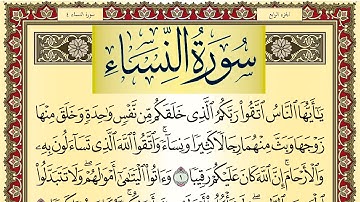 الجزء الرابع
سورة النساء ٤
سُورَةُ النِّسَاءِ
يَٰٓأَيُّهَا ٱلنَّاسُ ٱتَّقُوا۟ رَبَّكُمُ ٱلَّذِى خَلَقَكُم مِّن نَّفْسٍ وَٰحِدَةٍ وَخَلَقَ مِنْهَا
زَوْجَهَا وَبَثَّ مِنْهُمَا رِجَالًا كَثِيرًا وَنِسَآءً ۚ وَٱتَّقُوا۟ ٱللَّهَ ٱلَّذِى تَسَآءَلُونَ بِهِۦ
وَٱلْأَرْحَامَ ۚ إِنَّ ٱللَّهَ كَانَ عَلَيْكُمْ رَقِيبًا ١ وَءَاتُوا۟ ٱلْيَتَٰمَىٰٓ أَمْوَٰلَهُمْ ۖ وَلَا تَتَبَدَّلُوا۟